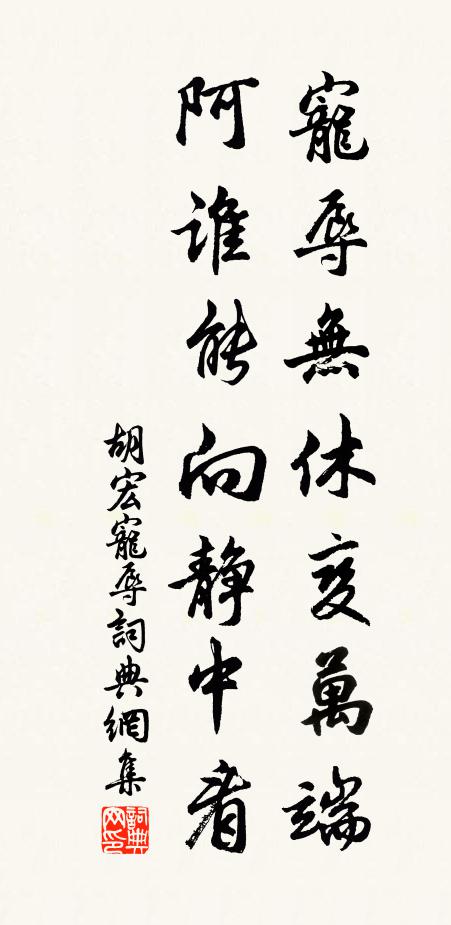 寵辱無休变萬端
阿誰能向静中看
胡宏寵辱詞典網集
詞典网印